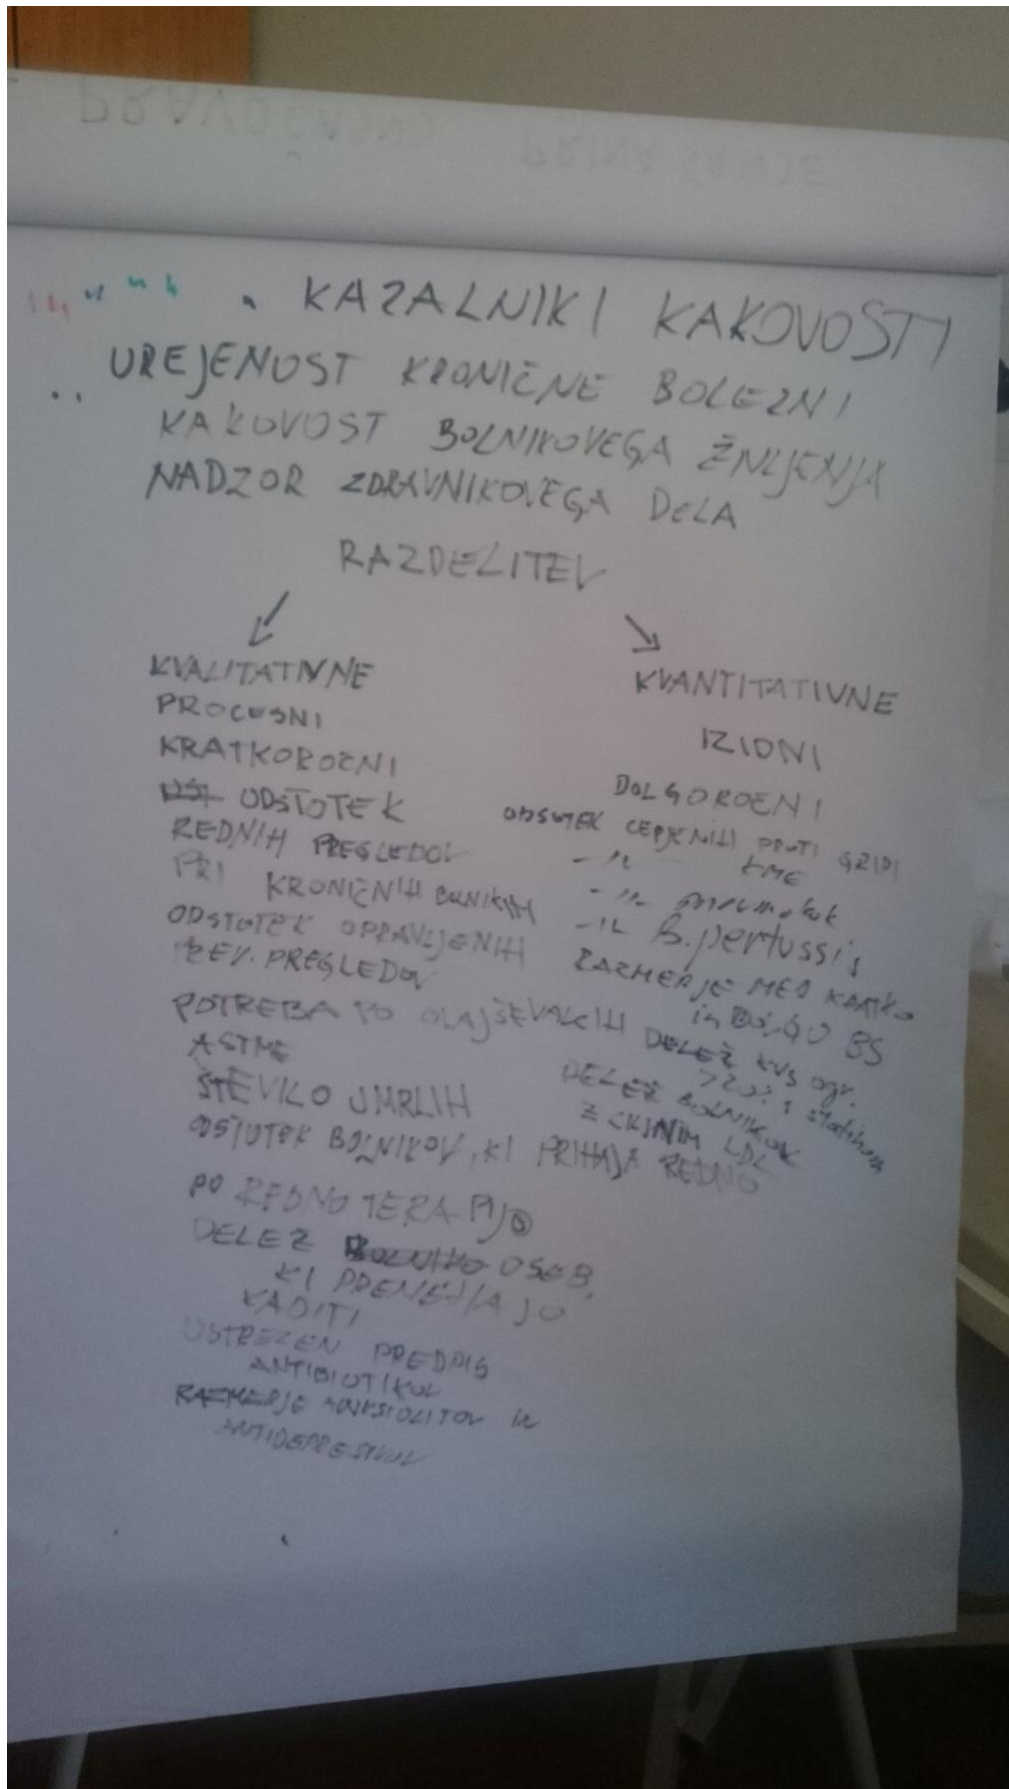 PRAVOČASNO PRINAŠANJE
KAZALNIKI KAKOVOSTI
UREJENOST KRONIČNE BOLEZNI
KAKOVOST BOLNIKOVEGA ŽIVLJENJA
NADZOR ZDRAVNIKOVEGA DELA
RAZDELITEV
KVALITATIVNE
PROCESNI
KRATKOROČNI
ODSTOTEK
REDNIH PREGLEDOV
PRI KRONIČNIH BOLNIKIH
ODSTOTEK OPRAVLJENIH
PREV. PREGLEDOV
POTREBA PO OLAJŠEVALCIH
ASTME
ŠTEVILO UMRLIH
ODSTOTEK BOLNIKOV, KI PRIHAJA REDNO
PO REDNO TERAPIJO
DELEŽ OSEB,
KI PRENEHAJO
KADITI
USTREZEN PREDPIS
ANTIBIOTIKOV
RAZMERJE ANKSIOLITOV IN
ANTIDEPRESIVOV
KVANTITATIVNE
IZIDNI
DOLGOROČNI
ODSOTEK CEPJENIH PROTI GRIPI
-11- KME
-11- pneumokok
-11- B. pertussis
RAZMERJE MED KRATKO
in DOLGO BS
DELEŽ KVS ogr.
>20% s statinom
DELEŽ BOLNIKOV
Z CILJNIM LDL